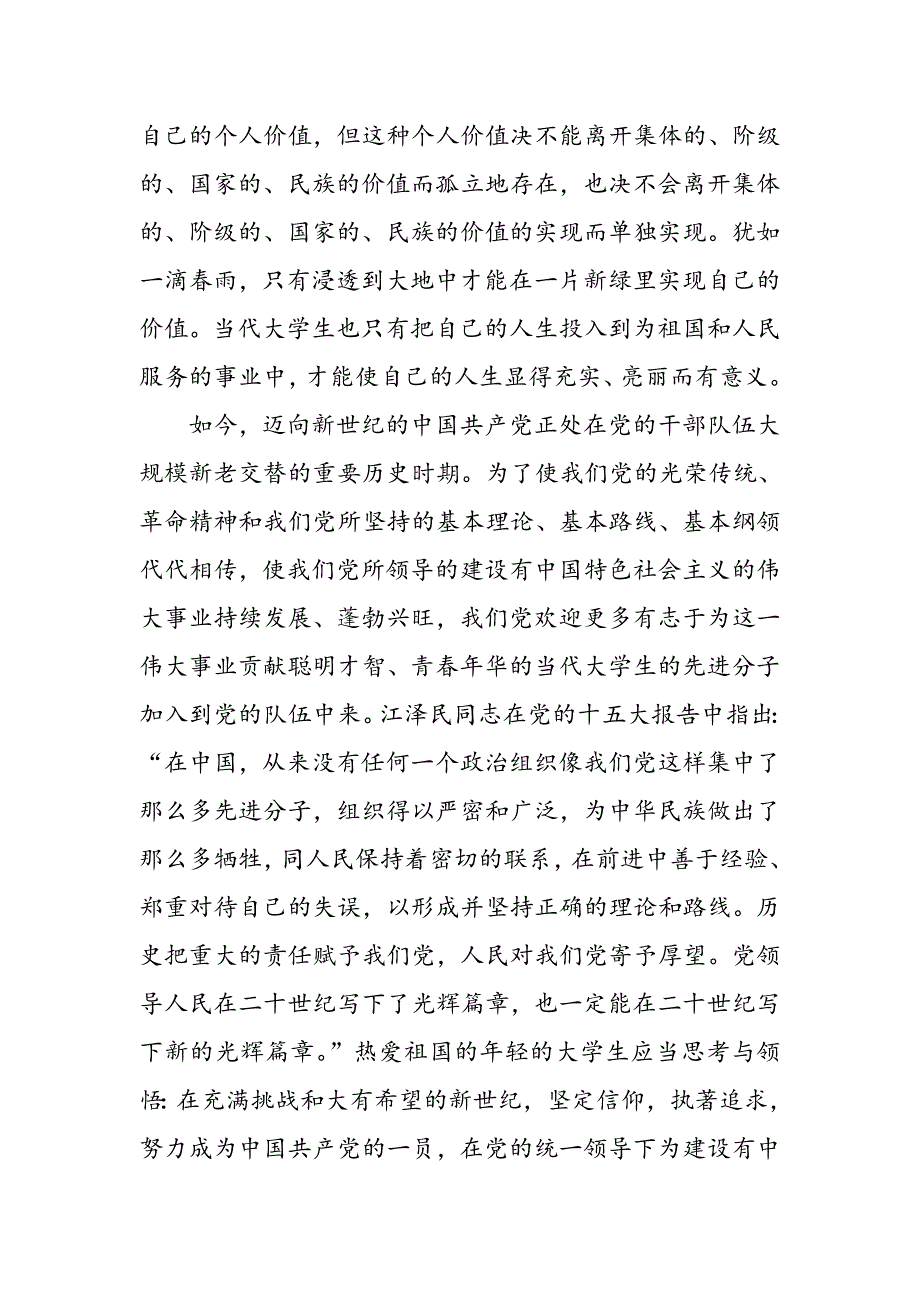 自己的个人价值，但这种个人价值决不能离开集体的、阶级
的、国家的、民族的价值而孤立地存在，也决不会离开集体
的、阶级的、国家的、民族的价值的实现而单独实现。犹如
一滴春雨，只有浸透到大地中才能在一片新绿里实现自己的
价值。当代大学生也只有把自己的人生投入到为祖国和人民
服务的事业中，才能使自己的人生显得充实、亮丽而有意义。
如今，迈向新世纪的中国共产党正处在党的干部队伍大
规模新老交替的重要历史时期。为了使我们党的光荣传统、
革命精神和我们党所坚持的基本理论、基本路线、基本纲领
代代相传，使我们党所领导的建设有中国特色社会主义的伟
大事业持续发展、蓬勃兴旺，我们党欢迎更多有志于为这一
伟大事业贡献聪明才智、青春年华的当代大学生的先进分子
加入到党的队伍中来。江泽民同志在党的十五大报告中指出：
“在中国，从来没有任何一个政治组织像我们党这样集中了
那么多先进分子，组织得以严密和广泛，为中华民族做出了
那么多牺牲，同人民保持着密切的联系，在前进中善于经验、
郑重对待自己的失误，以形成并坚持正确的理论和路线。历
史把重大的责任赋予我们党，人民对我们党寄予厚望。党领
导人民在二十世纪写下了光辉篇章，也一定能在二十世纪写
下新的光辉篇章。”热爱祖国的年轻的大学生应当思考与领
悟：在充满挑战和大有希望的新世纪，坚定信仰，执著追求，
努力成为中国共产党的一员，在党的统一领导下为建设有中